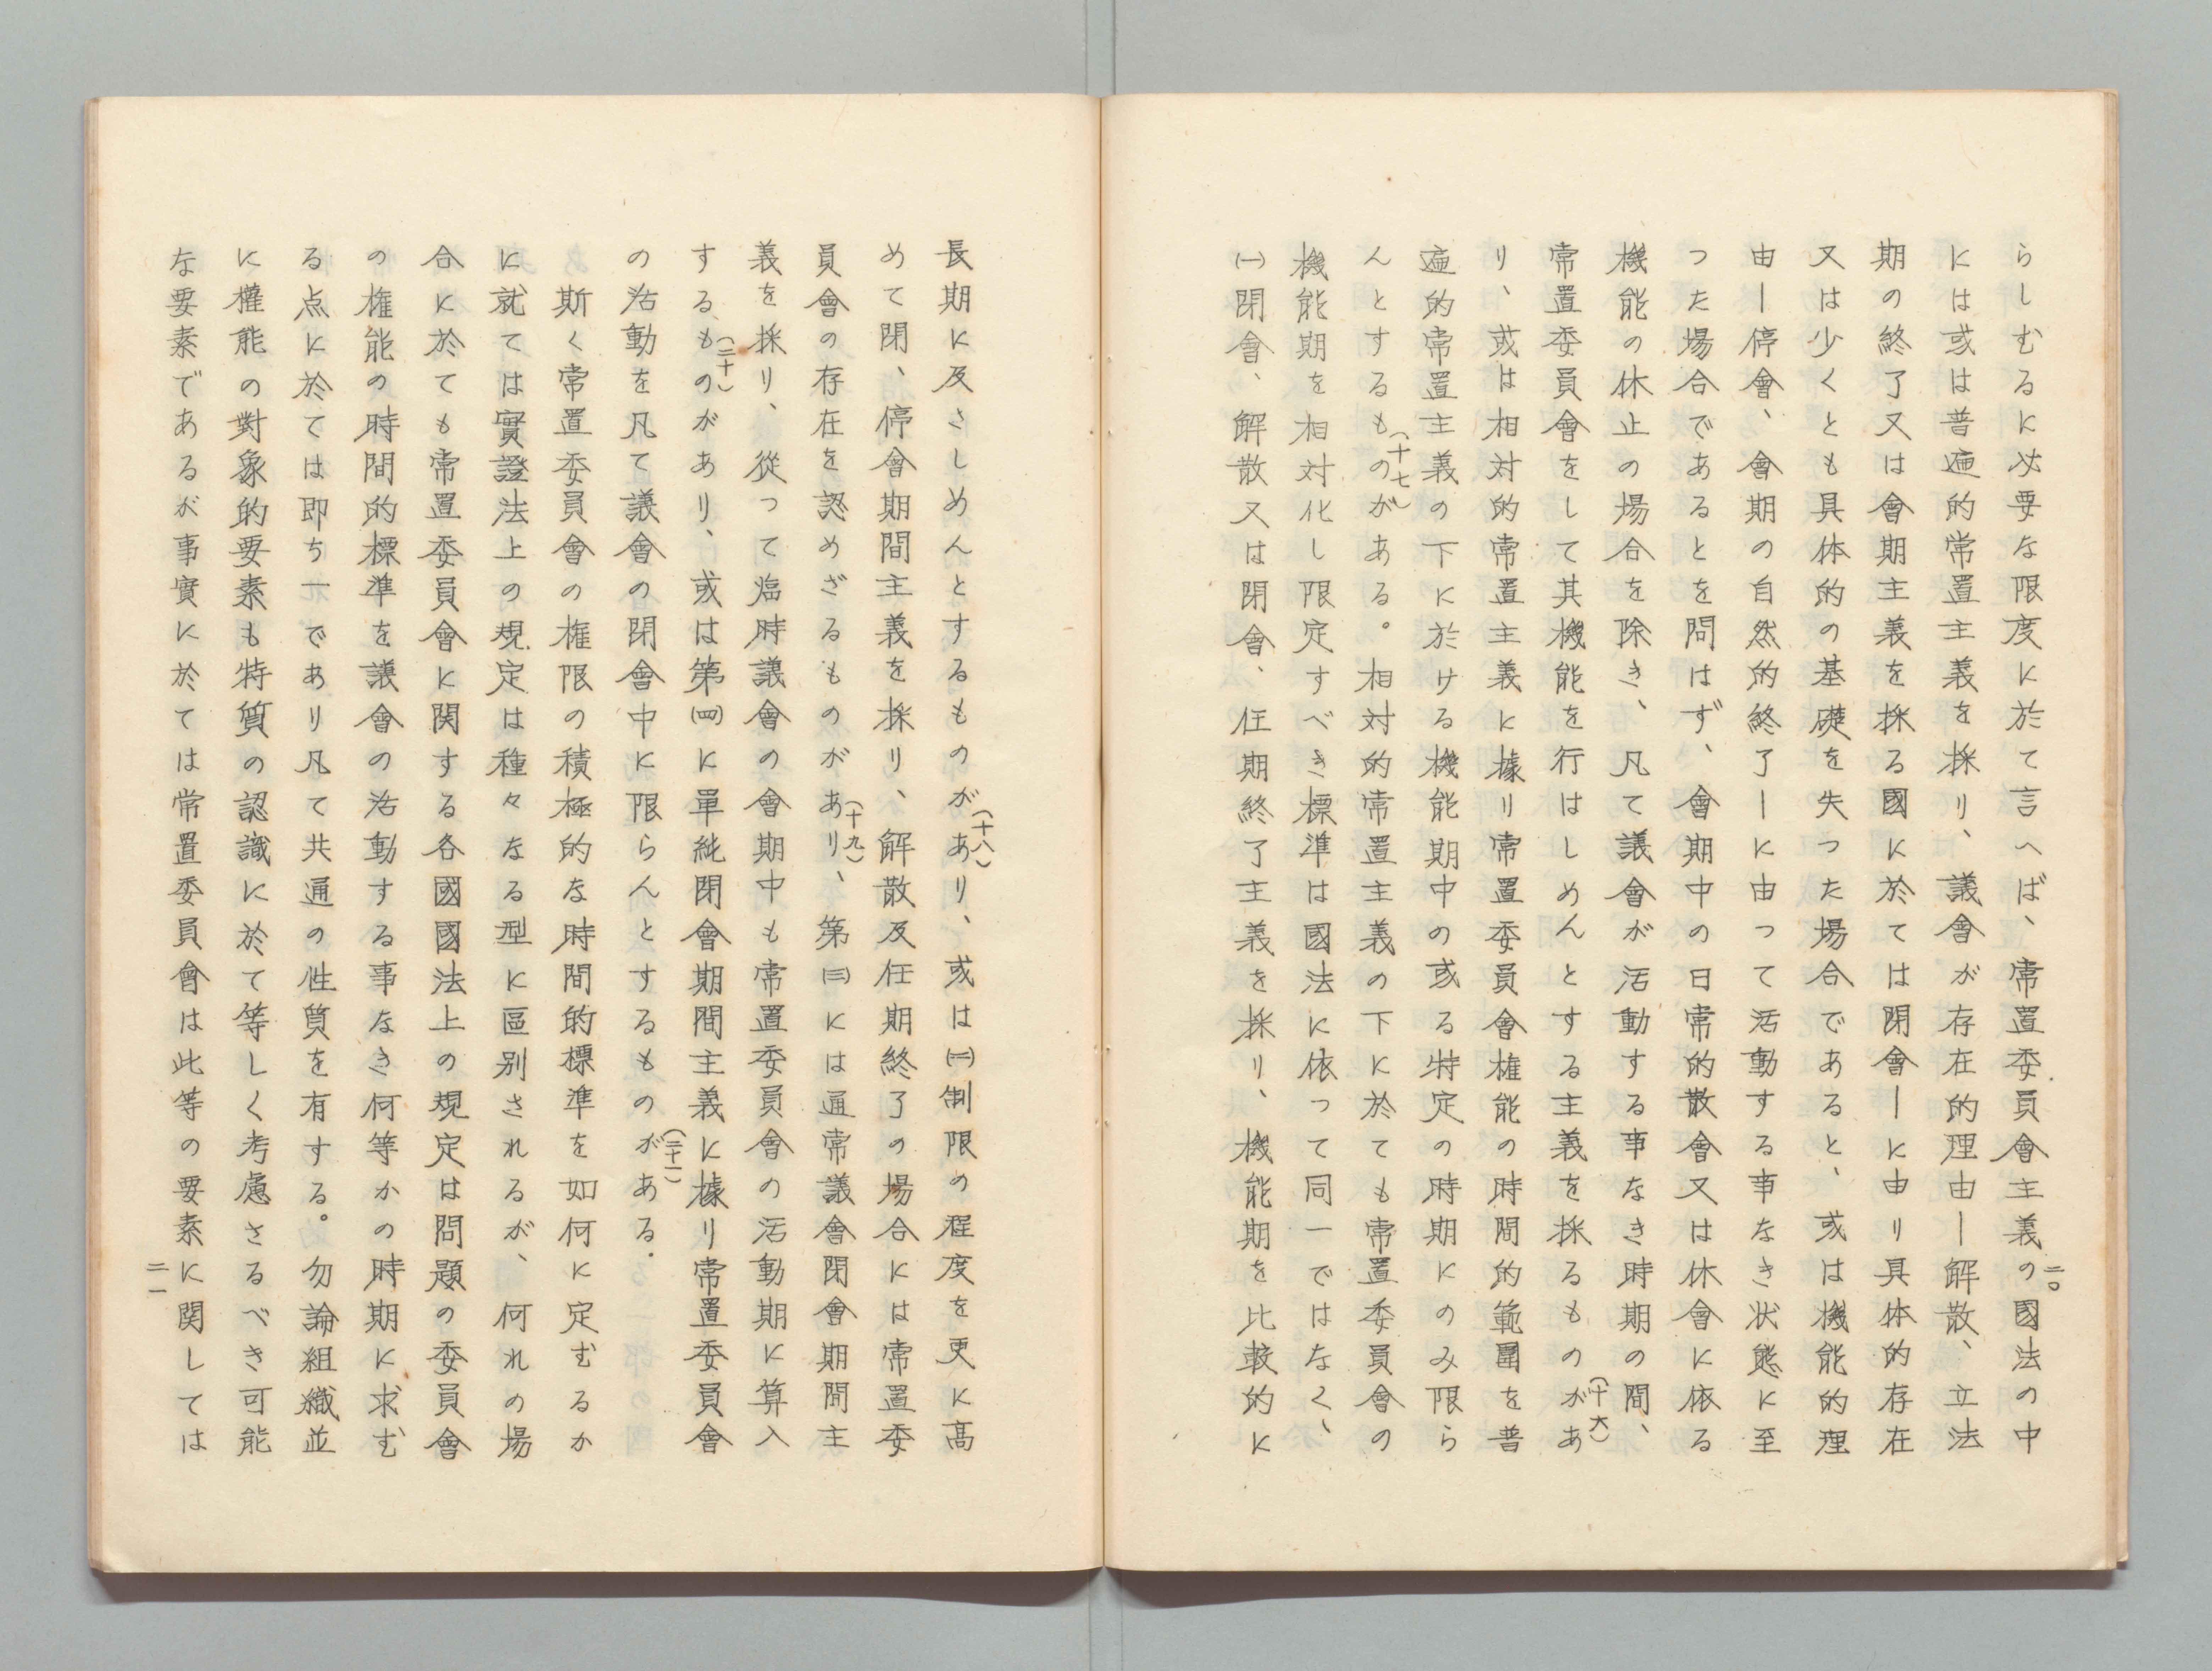 らしむるに必要な限度に於て言へば、常置委員會主義の國法の中
には或は普遍的常置主義を採り、議會が存在的理由ー解散、立法
期の終了又は會期主義を採る國に於ては閉會ーに由り具体的存在
又は少くとも具体的の基礎を失つた場合であると、或は機能的理
由ー停會、會期の自然的終了ーに由つて活動する事なき状態に至
つた場合であるとを問はず、會期中の日常的散會又は休會に依る
機能の休止の場合を除き、凡て議會が活動する事なき時期の間、
常置委員會をして其機能を行はしめんとする主義を採るものがあ(十六)
り、或は相対的常置主義に據り常置委員會権能の時間的範圍を普
遍的常置主義の下に於ける機能期中の或る特定の時期にのみ限ら
んとするものがある。(十七)相対的常置主義の下に於ても常置委員會の
機能期を相対化し限定すべき標準は國法に依つて同一ではなく、
㈠閉會、解散又は閉會、任期終了主義を採り、機能期を比較的に
二〇
長期に及さしめんとするものがあり、(十八)或は㈡制限の程度を更に髙
めて閉、停會期間主義を採り、解散及任期終了の場合には常置委
員會の存在を認めざるものがあり、(十九)第㈢には通常議會閉會期間主
義を採り、從つて臨時議會の會期中も常置委員會の活動期に算入
するものがあり、(二十)或は第㈣に單純閉會期間主義に據り常置委員會
の活動を凡て議會の閉會中に限らんとするものがある.(二十一)
斯く常置委員會の権限の積極的な時間的標準を如何に定むるか
に就ては實證法上の規定は種々なる型に區别されるが、何れの場
合に於ても常置委員會に関する各國國法上の規定は問題の委員會
の権能の時間的標準を議會の活動する事なき何等かの時期に求む
る点に於ては即ち一であり凡て共通の性質を有する。勿論組織並
に權能の對象的要素も特質の認識に於て等しく考慮さるべき可能
な要素であるが事實に於ては常置委員會は此等の要素に関しては
二一